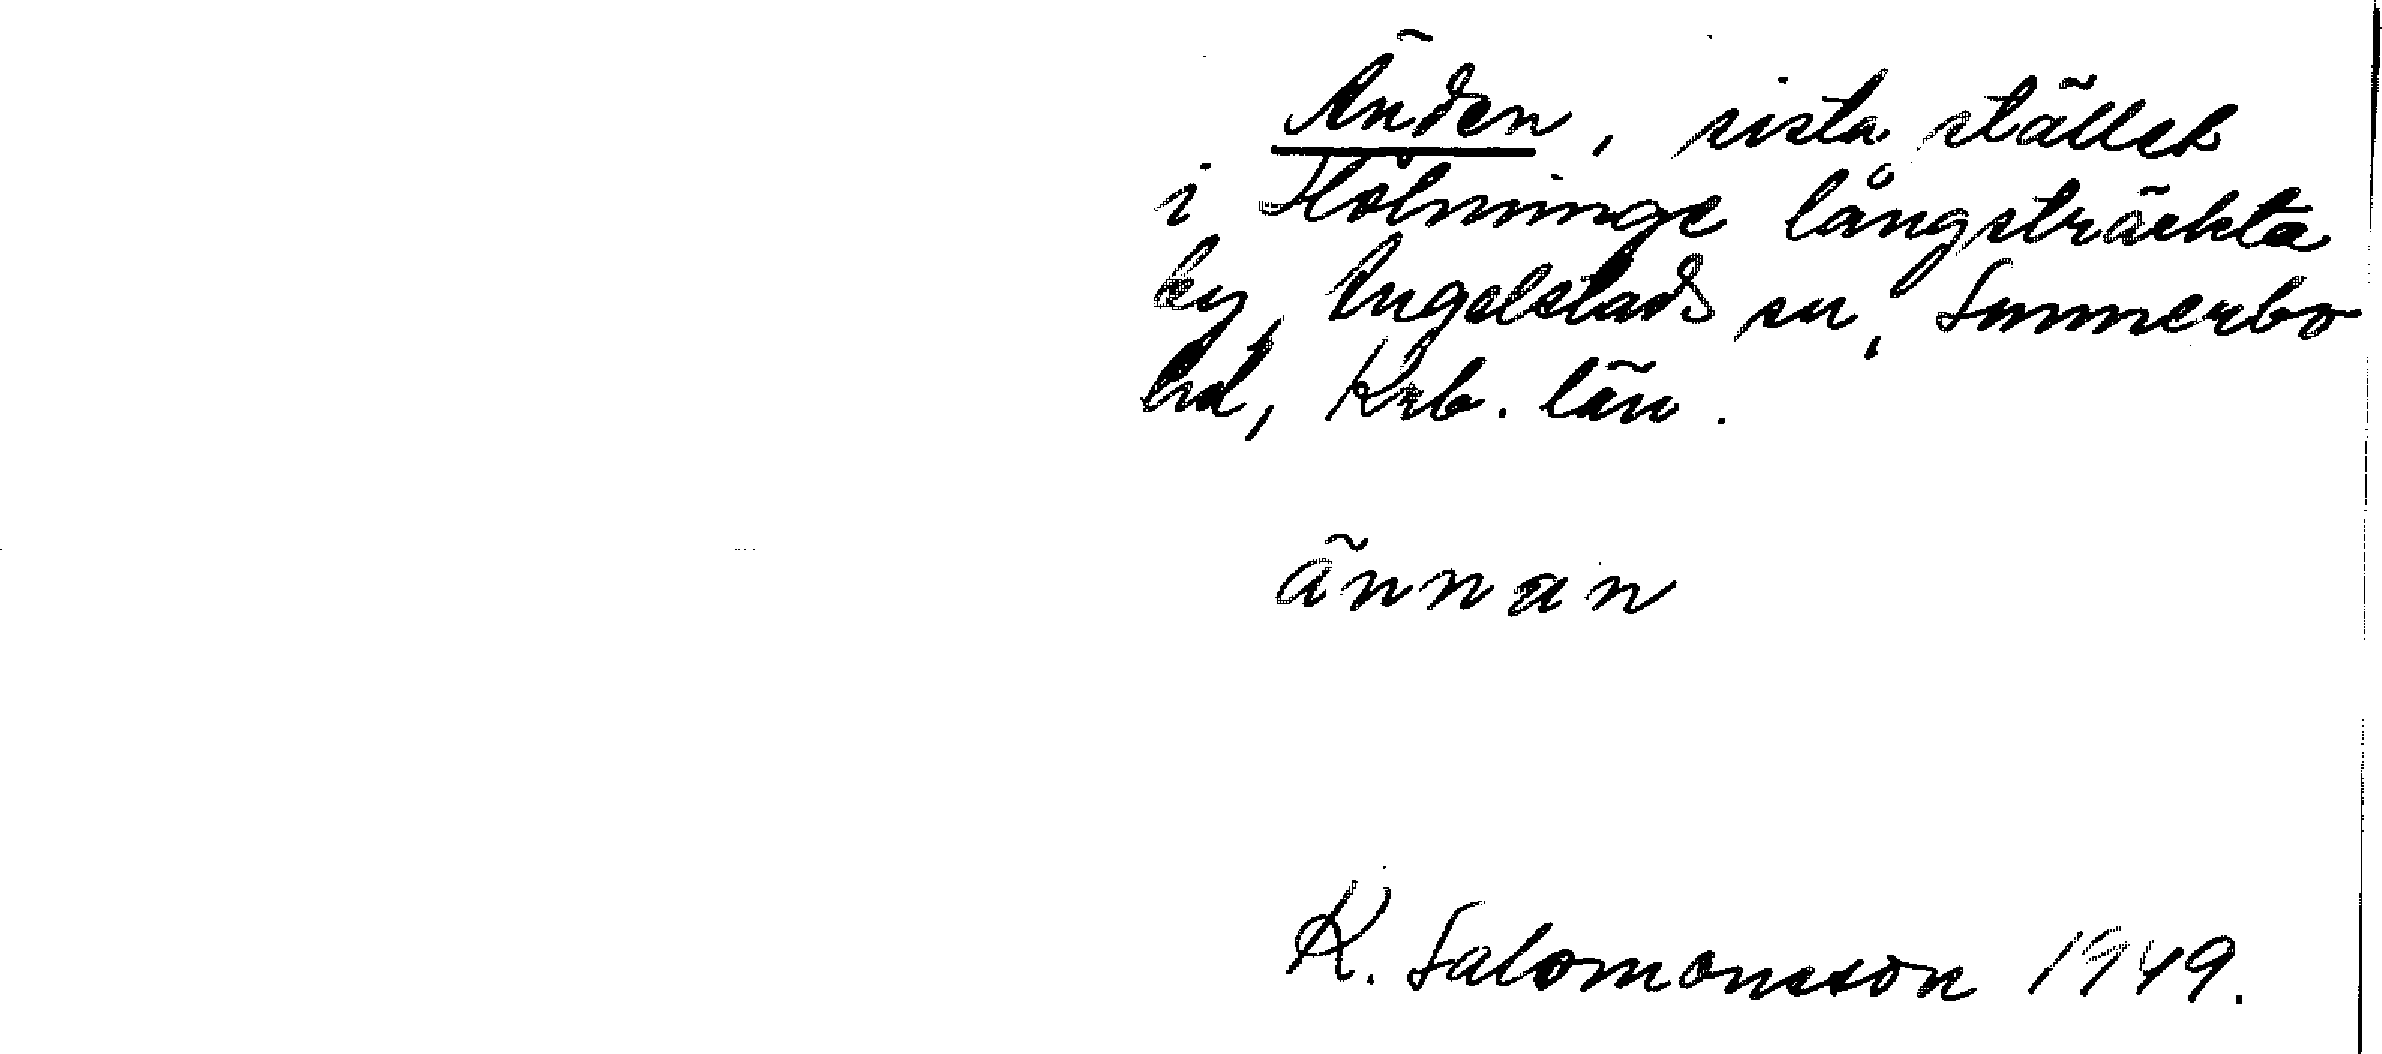 Änden, sista stället
i Hölminge långsträckta
by, Angelstads sn, Sunnerbo
hd, Krb. län.
ännan
K. Salomonsson 1949.